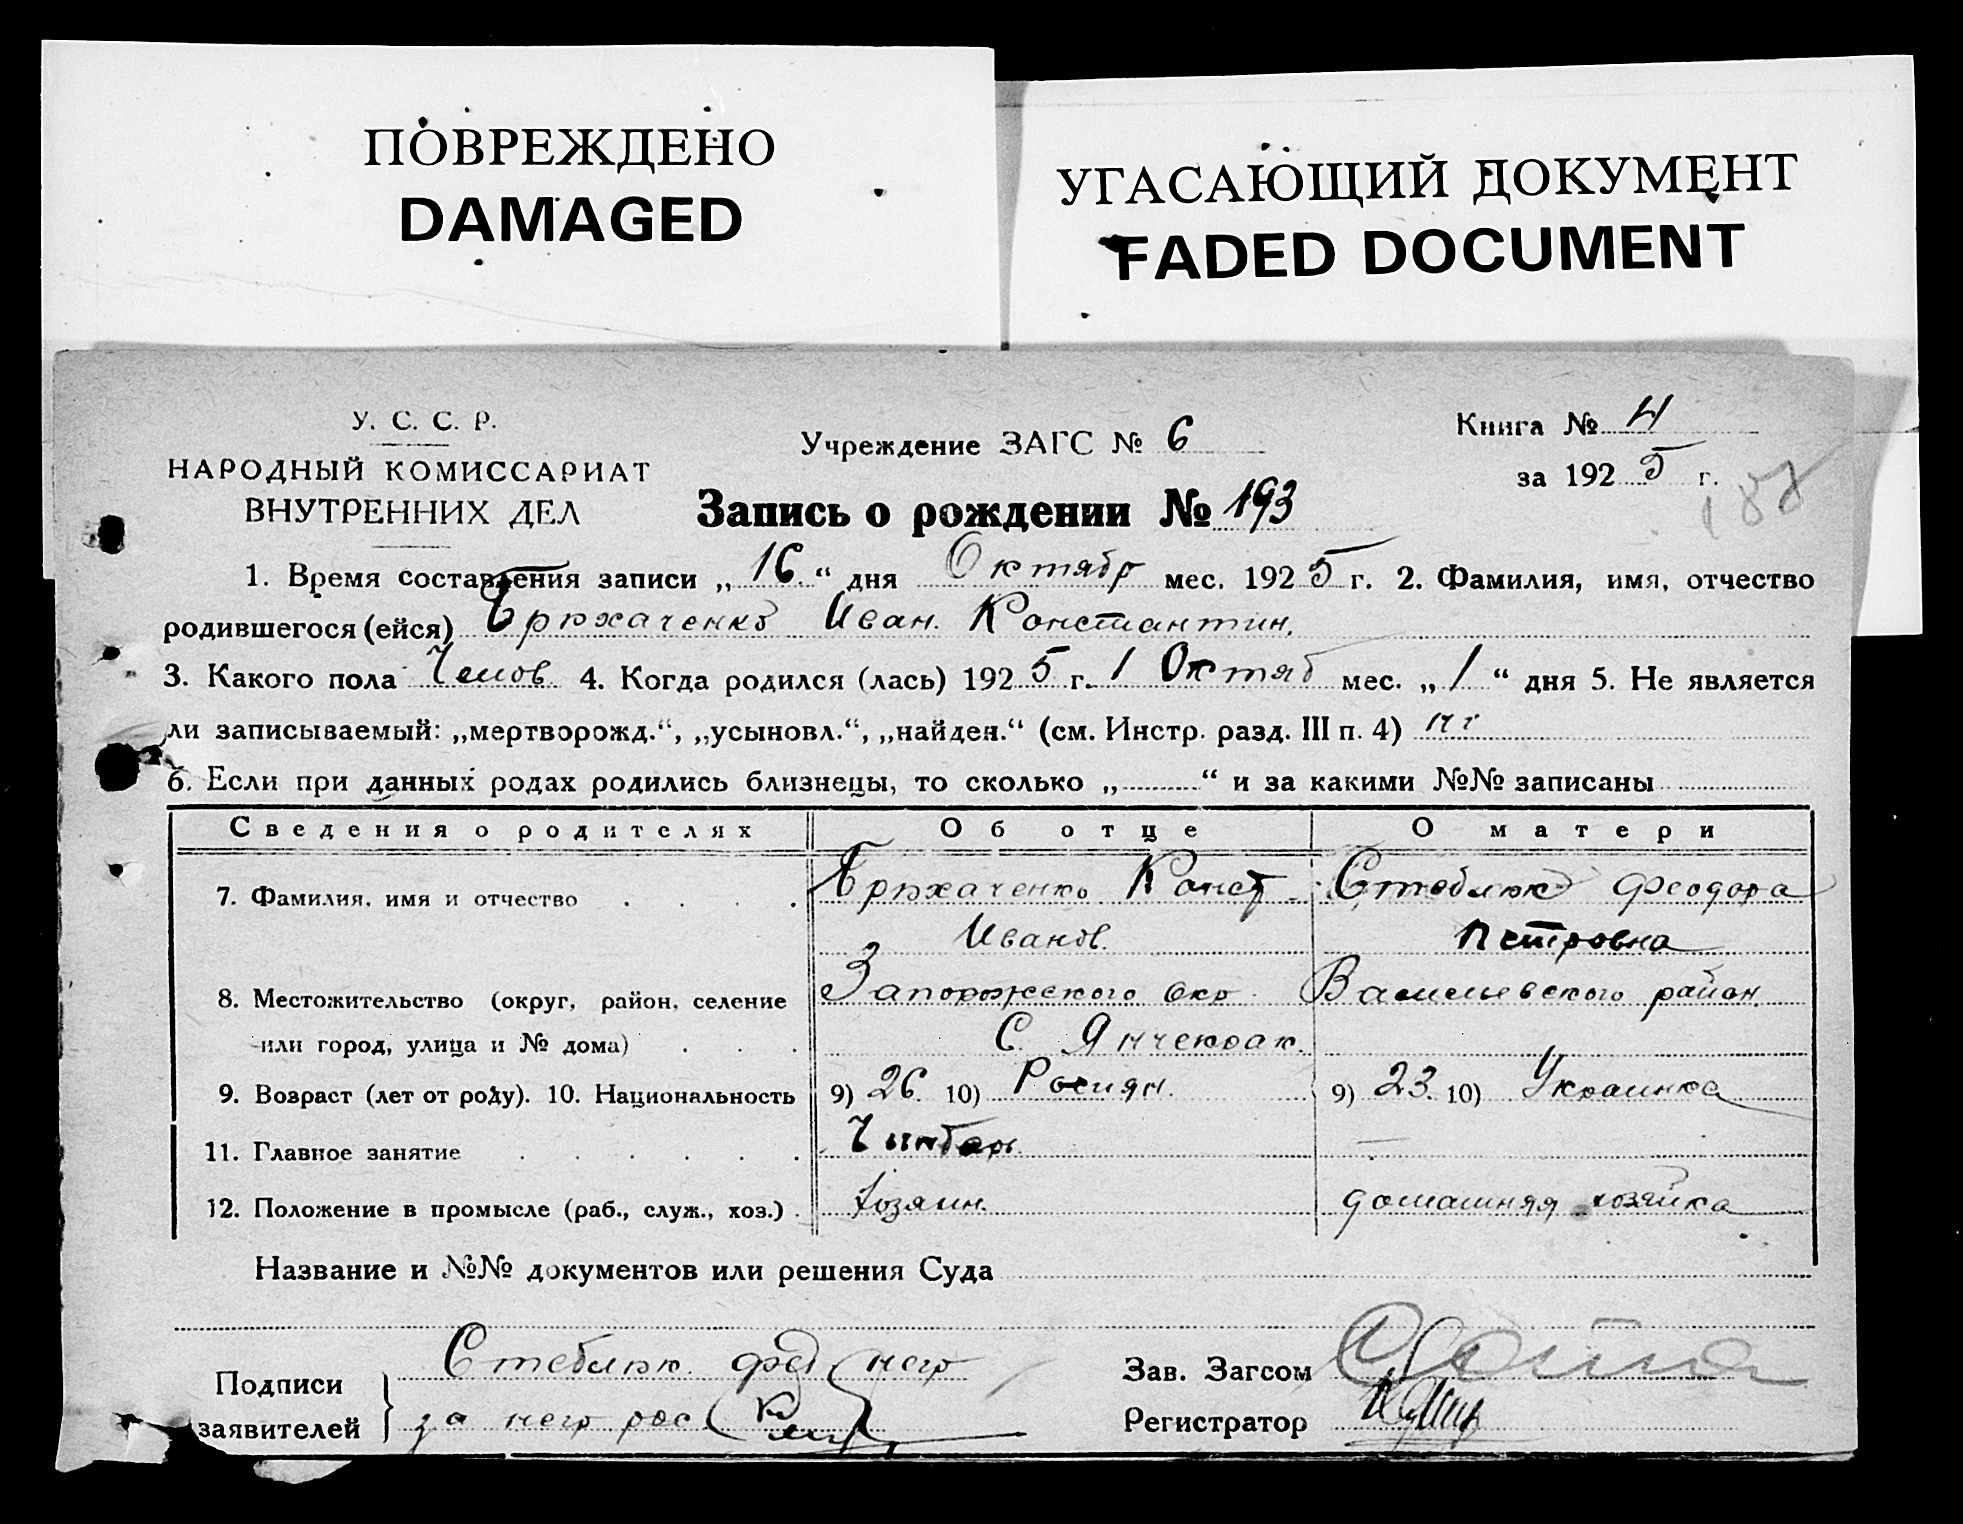 ПОВРЕЖДЕНО
DAMAGED
УГАСАЮЩИЙ ДОКУМЕНТ
FADED DOCUMENT
У. С. С. Р.
НАРОДНЫЙ КОМИССАРИАТ
ВНУТРЕННИХ ДЕЛ
Учреждение ЗАГС № 6
Книга № 4
за 1925 г.
188
Запись о рождении № 193
1. Время составления записи „16“ дня Октябр мес. 1925 г. 2. Фамилия, имя, отчество
родившегося (ейся) Брюхаченко Иван. Константин.
3. Какого пола 4. Когда родился (лась) 1925 г. 1 Октяб мес. „1“ дня 5. Не является
ли записываемый: „мертворожд.“, „усыновл.“, „найден.“ (см. Инстр. разд. III п. 4)
6. Если при данных родах родились близнецы, то сколько „ “ и за какими №№ записаны
Сведения о родителях Об отце О матери
7. Фамилия, имя и отчество Брюхаченко Конст Стеблюк Феодора
Иванов. Петровна
8. Местожительство (округ, район, селение Запорожского Окр Васильевского район.
или город, улица и № дома) С. Янчекрак.
9. Возраст (лет от роду). 10. Национальность 9) 26. 10) Росиян. 9) 23. 10) Украинка
11. Главное занятие Чинбарь —
12. Положение в промысле (раб., служ., хоз.) хозяин. домашняя хозяйка
Название и №№ документов или решения Суда
Подписи заявителей Стеблюк Фед него
за него рос
Зав. Загсом
Регистратор